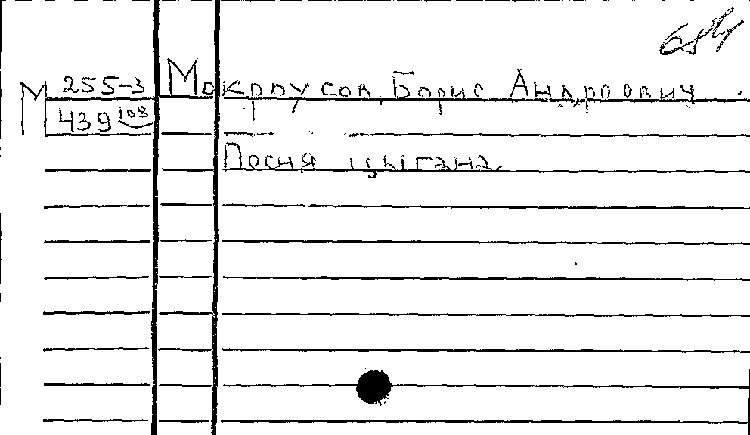 М 255-3 Мокроусов, Борис Андреевич.
439 108
Песня цыгана.